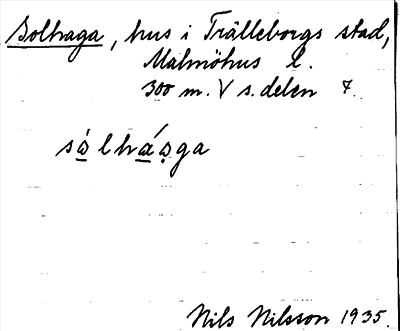 Solhaga, hus i Trälleborgs stad,
Malmöhus l.
300 m. V s. delen 7.
sólháǫga
Nils Nilsson 1935.